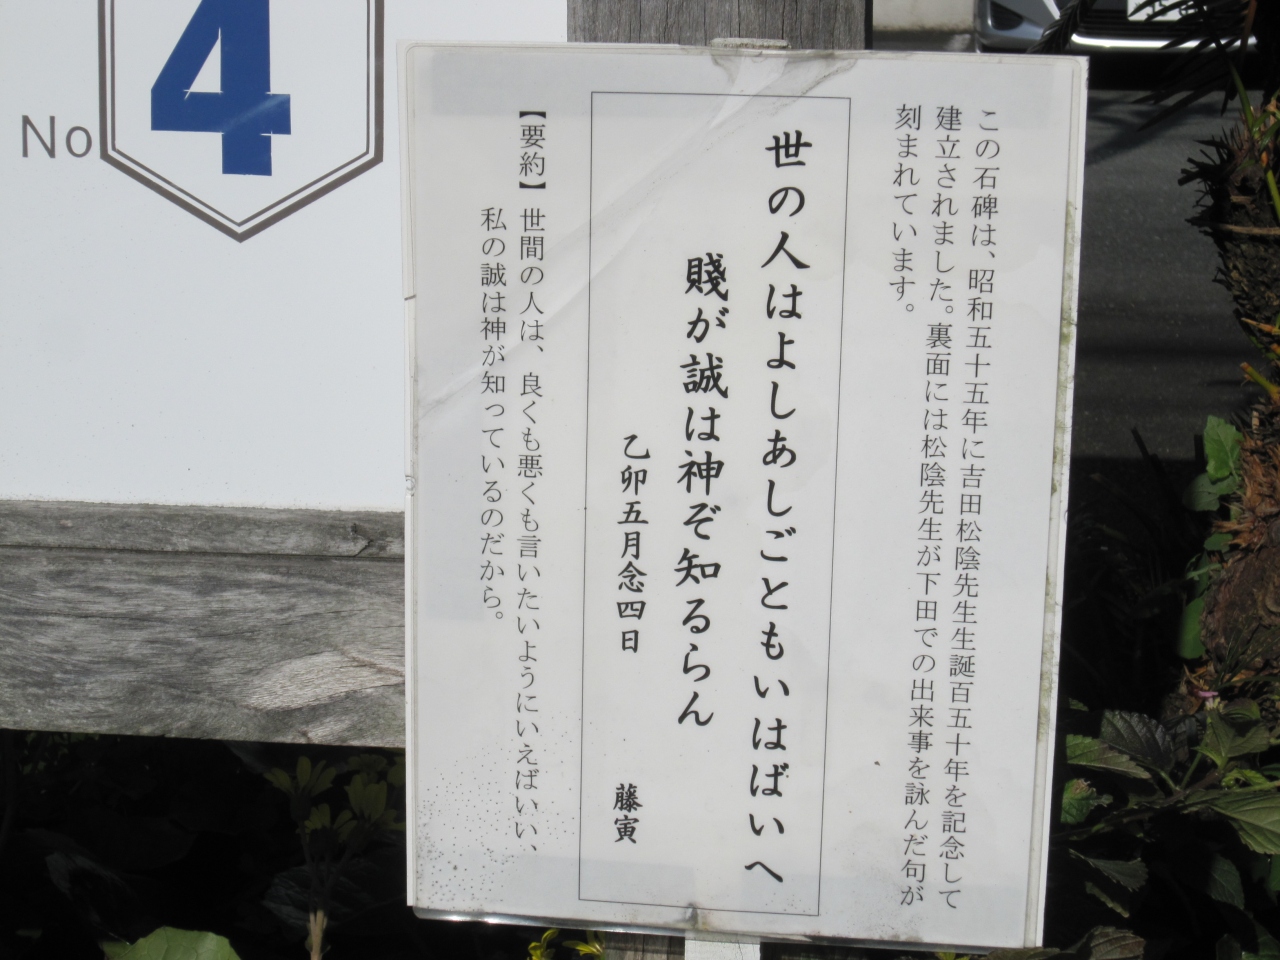 No
4
この石碑は、昭和五十五年に吉田松陰先生生誕百五十年を記念して
建立されました。裏面には松陰先生が下田での出来事を詠んだ句が
刻まれています。
世の人はよしあしごともいはばいへ
賤が誠は神ぞ知るらん
乙卯五月念四日 藤寅
【要約】世間の人は、良くも悪くも言いたいようにいえばいい、
私の誠は神が知っているのだから。